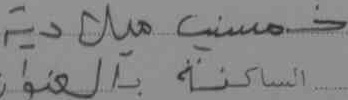 خمسين ميلادية
الساكنة بالعنوان